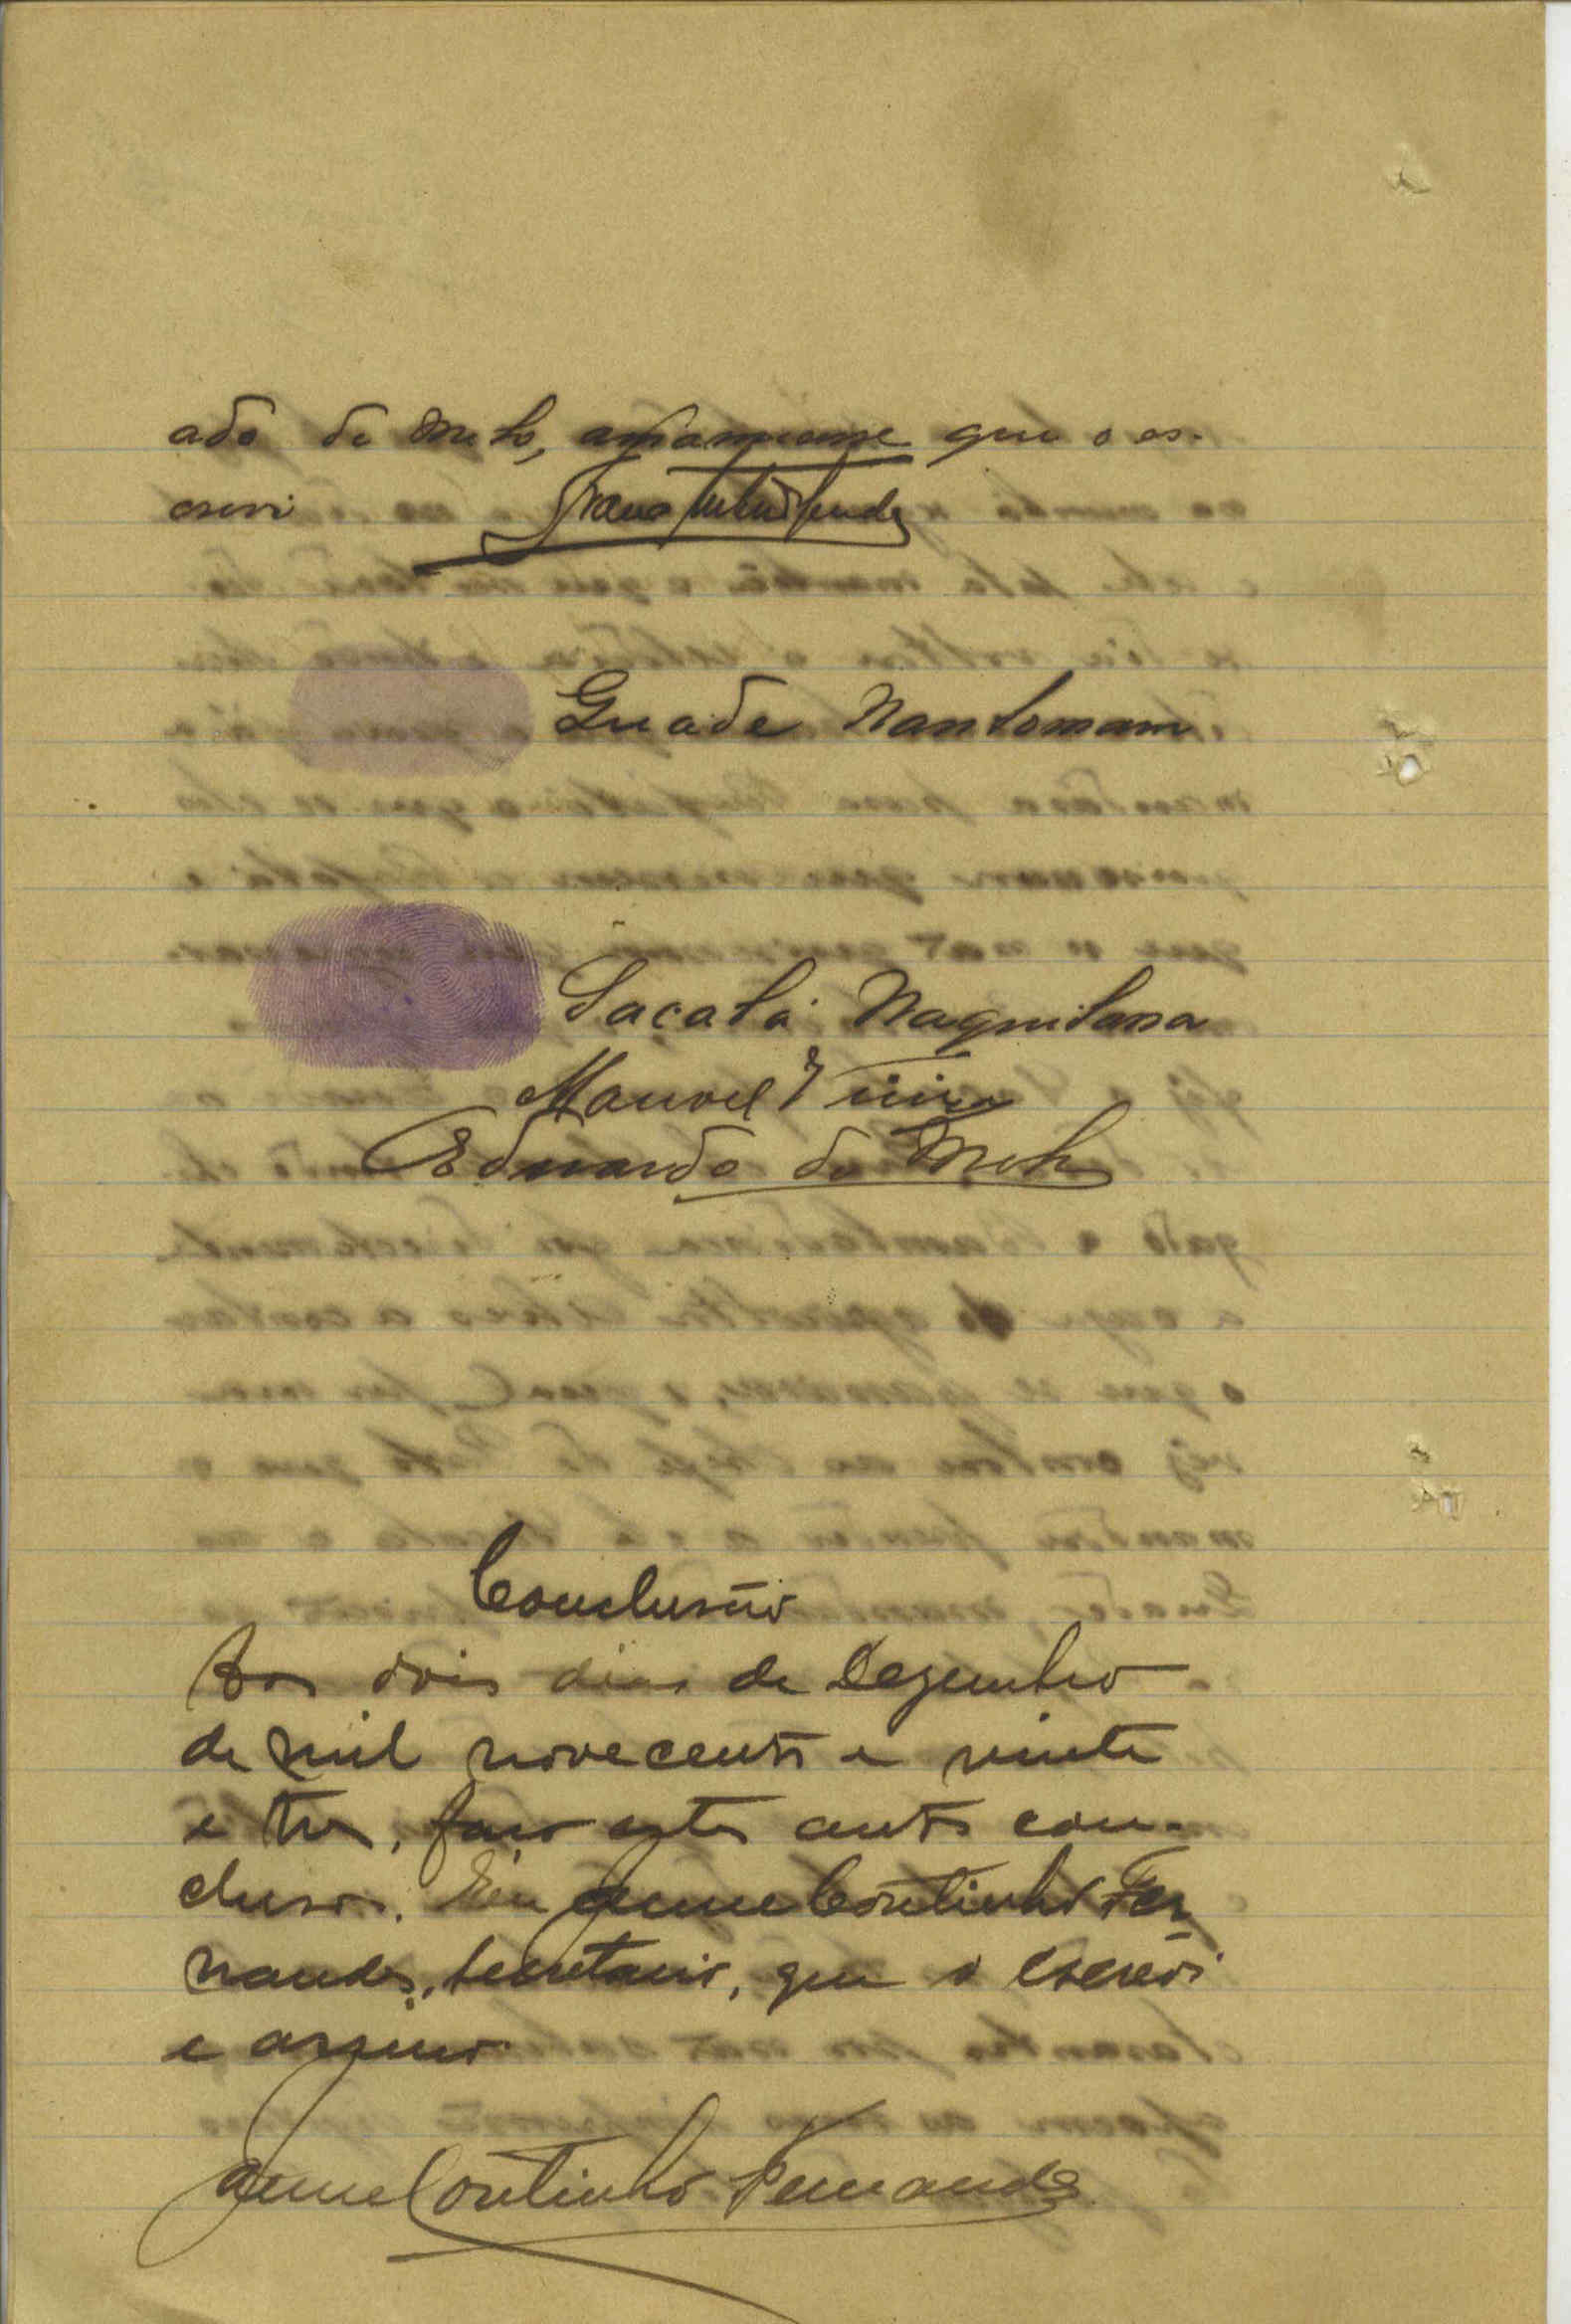 ado de Melo, amanuense que o es-
crevi
Guade Nantomam
Saçatá Naquitana
Manoel Vieira
Eduardo de Melo
Conclusão
Aos dois dias de Dezembro
de mil novecentos e vinte
e tres, faço estes autos con-
clusos. Eu Jaime Coutinho Fer
nandes, secretario, que o escrevi
e assino
Jaime Coutinho Fernandes